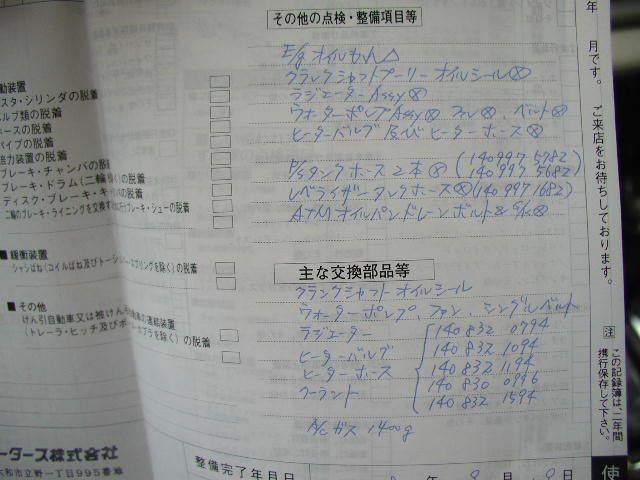 その他の点検・整備項目等
E/g オイルもれ △
クランクシャフトプーリー オイルシール ⊗
ラジエーター Assy ⊗
ウォーターポンプ Assy ⊗ ファン ⊗ 、ベルト ⊗
ヒーターバルブ 及び ヒーターホース ⊗
P/Sタンク ホース 2本 ⊗ (140 997 5782)
(140 997 5682)
レベライザータンクホース ⊗ (140 997 1682)
ATM オイルパン ドレーン ボルト & ⊗
主な交換部品等
クランクシャフト オイルシール
ウォーターポンプ、ファン、シングルベルト
ラジエーター 140 832 0794
ヒーターバルブ 140 832 1094
ヒーターホース 140 832 1194
クーラント 140 830 0996
140 832 1594
A/C ガス 1400g
整備完了年月日
動装置
スタ・シリンダの脱着
ルブ類の脱着
ホースの脱着
パイプの脱着
倍力装置の脱着
ブレーキ・チャンバの脱
ブレーキ・ドラム(二輪 除く)の脱着
ディスク・ブレーキ・キ の脱着
二輪のブレーキ・ライニングを交換す ブレーキ・シューの脱着
■ 緩衝装置
シャシばね(コイルばね及びトーションバースプリングを除く)の脱着
■ その他
けん引自動車又は被けん引自動車の連結装置
(トレーラ・ヒッチ及びボ カプラを除く)の脱着
ータース株式会社
大和市立野一丁目995番地
年 月です。 ご来店をお待ちしております。
注 この記録簿は、二年間
携行保存して下さい。
使